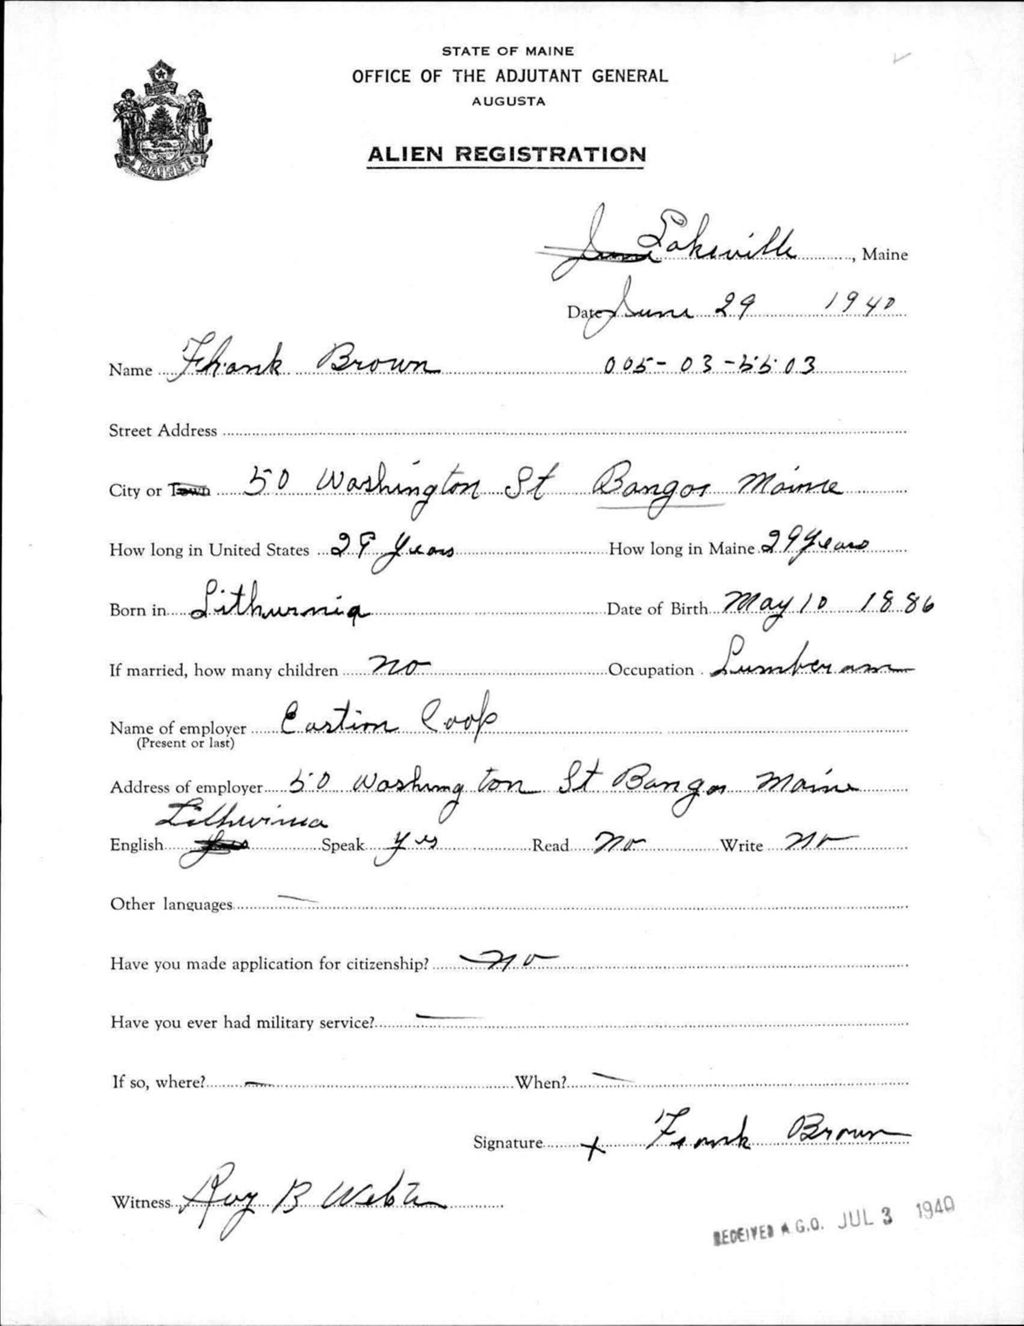 STATE OF MAINE
OFFICE OF THE ADJUTANT GENERAL
AUGUSTA
ALIEN REGISTRATION
MAINE
June Lakeville, Maine
Date June 29 1940
Name Fhank Brown 005-03-5503
Street Address
City or Town 50 Washington St Bangor Maine
How long in United States 29 years How long in Maine 29 years
Born in Lithurnia Date of Birth May 10 1886
If married, how many children no Occupation Lumberman
Name of employer Eastirn Coop
(Present or last)
Address of employer 50 Washington St Bangor Maine
Lithurnia
English Speak yes Read No Write No
Other languages —
Have you made application for citizenship? No
Have you ever had military service? —
If so, where? — When? —
Signature x Frank Brown
Witness Roy B Webster
RECEIVED A.G.O. JUL 3 1940